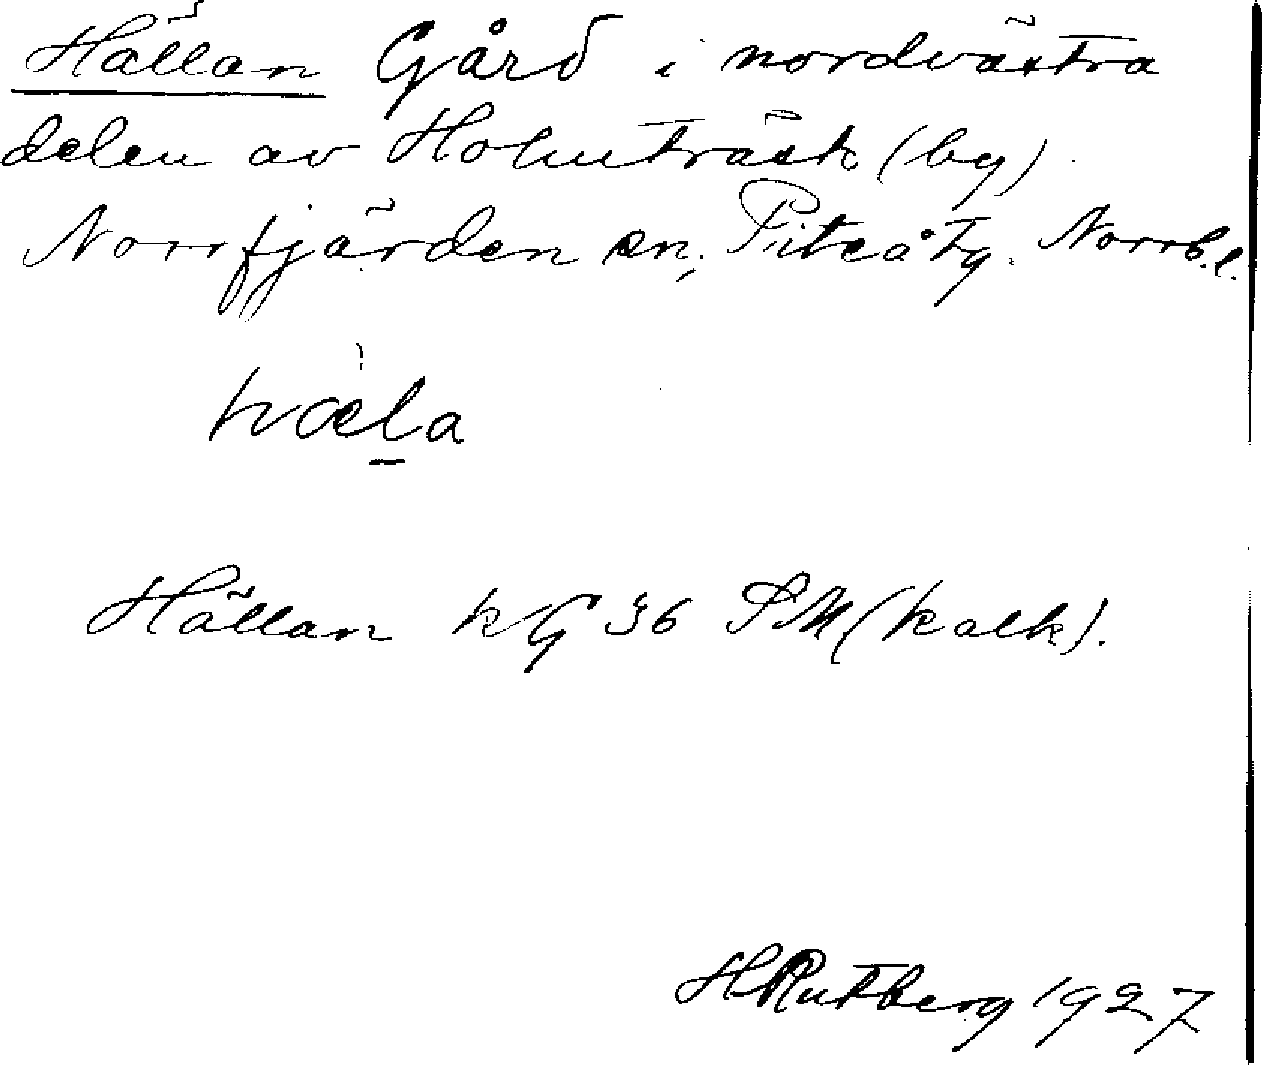 Hällan Gård i nordvästra
delen av Holmträsk (by).
Norrfjärden sn, Piteå tg. Norrb.l.
hæ̀la
Hällan kG 36 SM (kalk).
HRutberg 1927